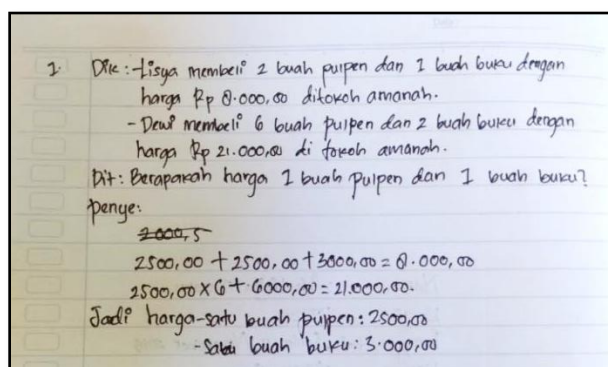 1. Dik: -Lisya membeli 2 buah pulpen dan 1 buah buku dengan
harga Rp 8.000,00 ditokoh amanah.
- Dewi membeli 6 buah pulpen dan 2 buah buku dengan
harga Rp 21.000,00 di tokoh amanah.
Dit: Berapakah harga 1 buah pulpen dan 1 buah buku?
Penye:
2000,5
2500,00 + 2500,00 + 3000,00 = 8.000,00
2500,00 x 6 + 6000,00 = 21.000,00.
Jadi harga-satu buah pulpen: 2500,00
-Satu buah buku: 3.000,00